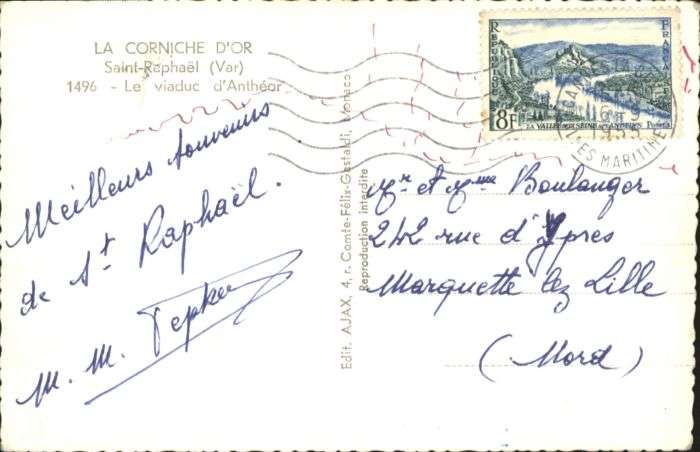 LA CORNICHE D'OR
Saint-Raphaël (Var)
1496 - Le viaduc d'Anthéor
Meilleurs souvenirs
de St Raphaël.
M. M.
Edit. AJAX, 4, r. Comte-Félix-Gastaldi, Monaco
Reproduction interdite
REPUBLIQUE
FRANÇAISE
8F
LA VALLEE DE LA SEINE AUX ANDELYS
POSTES
ES MARITIME
Mr et Mme Boulanger
242 rue d'Ypres
Marquette lez Lille
(Nord)